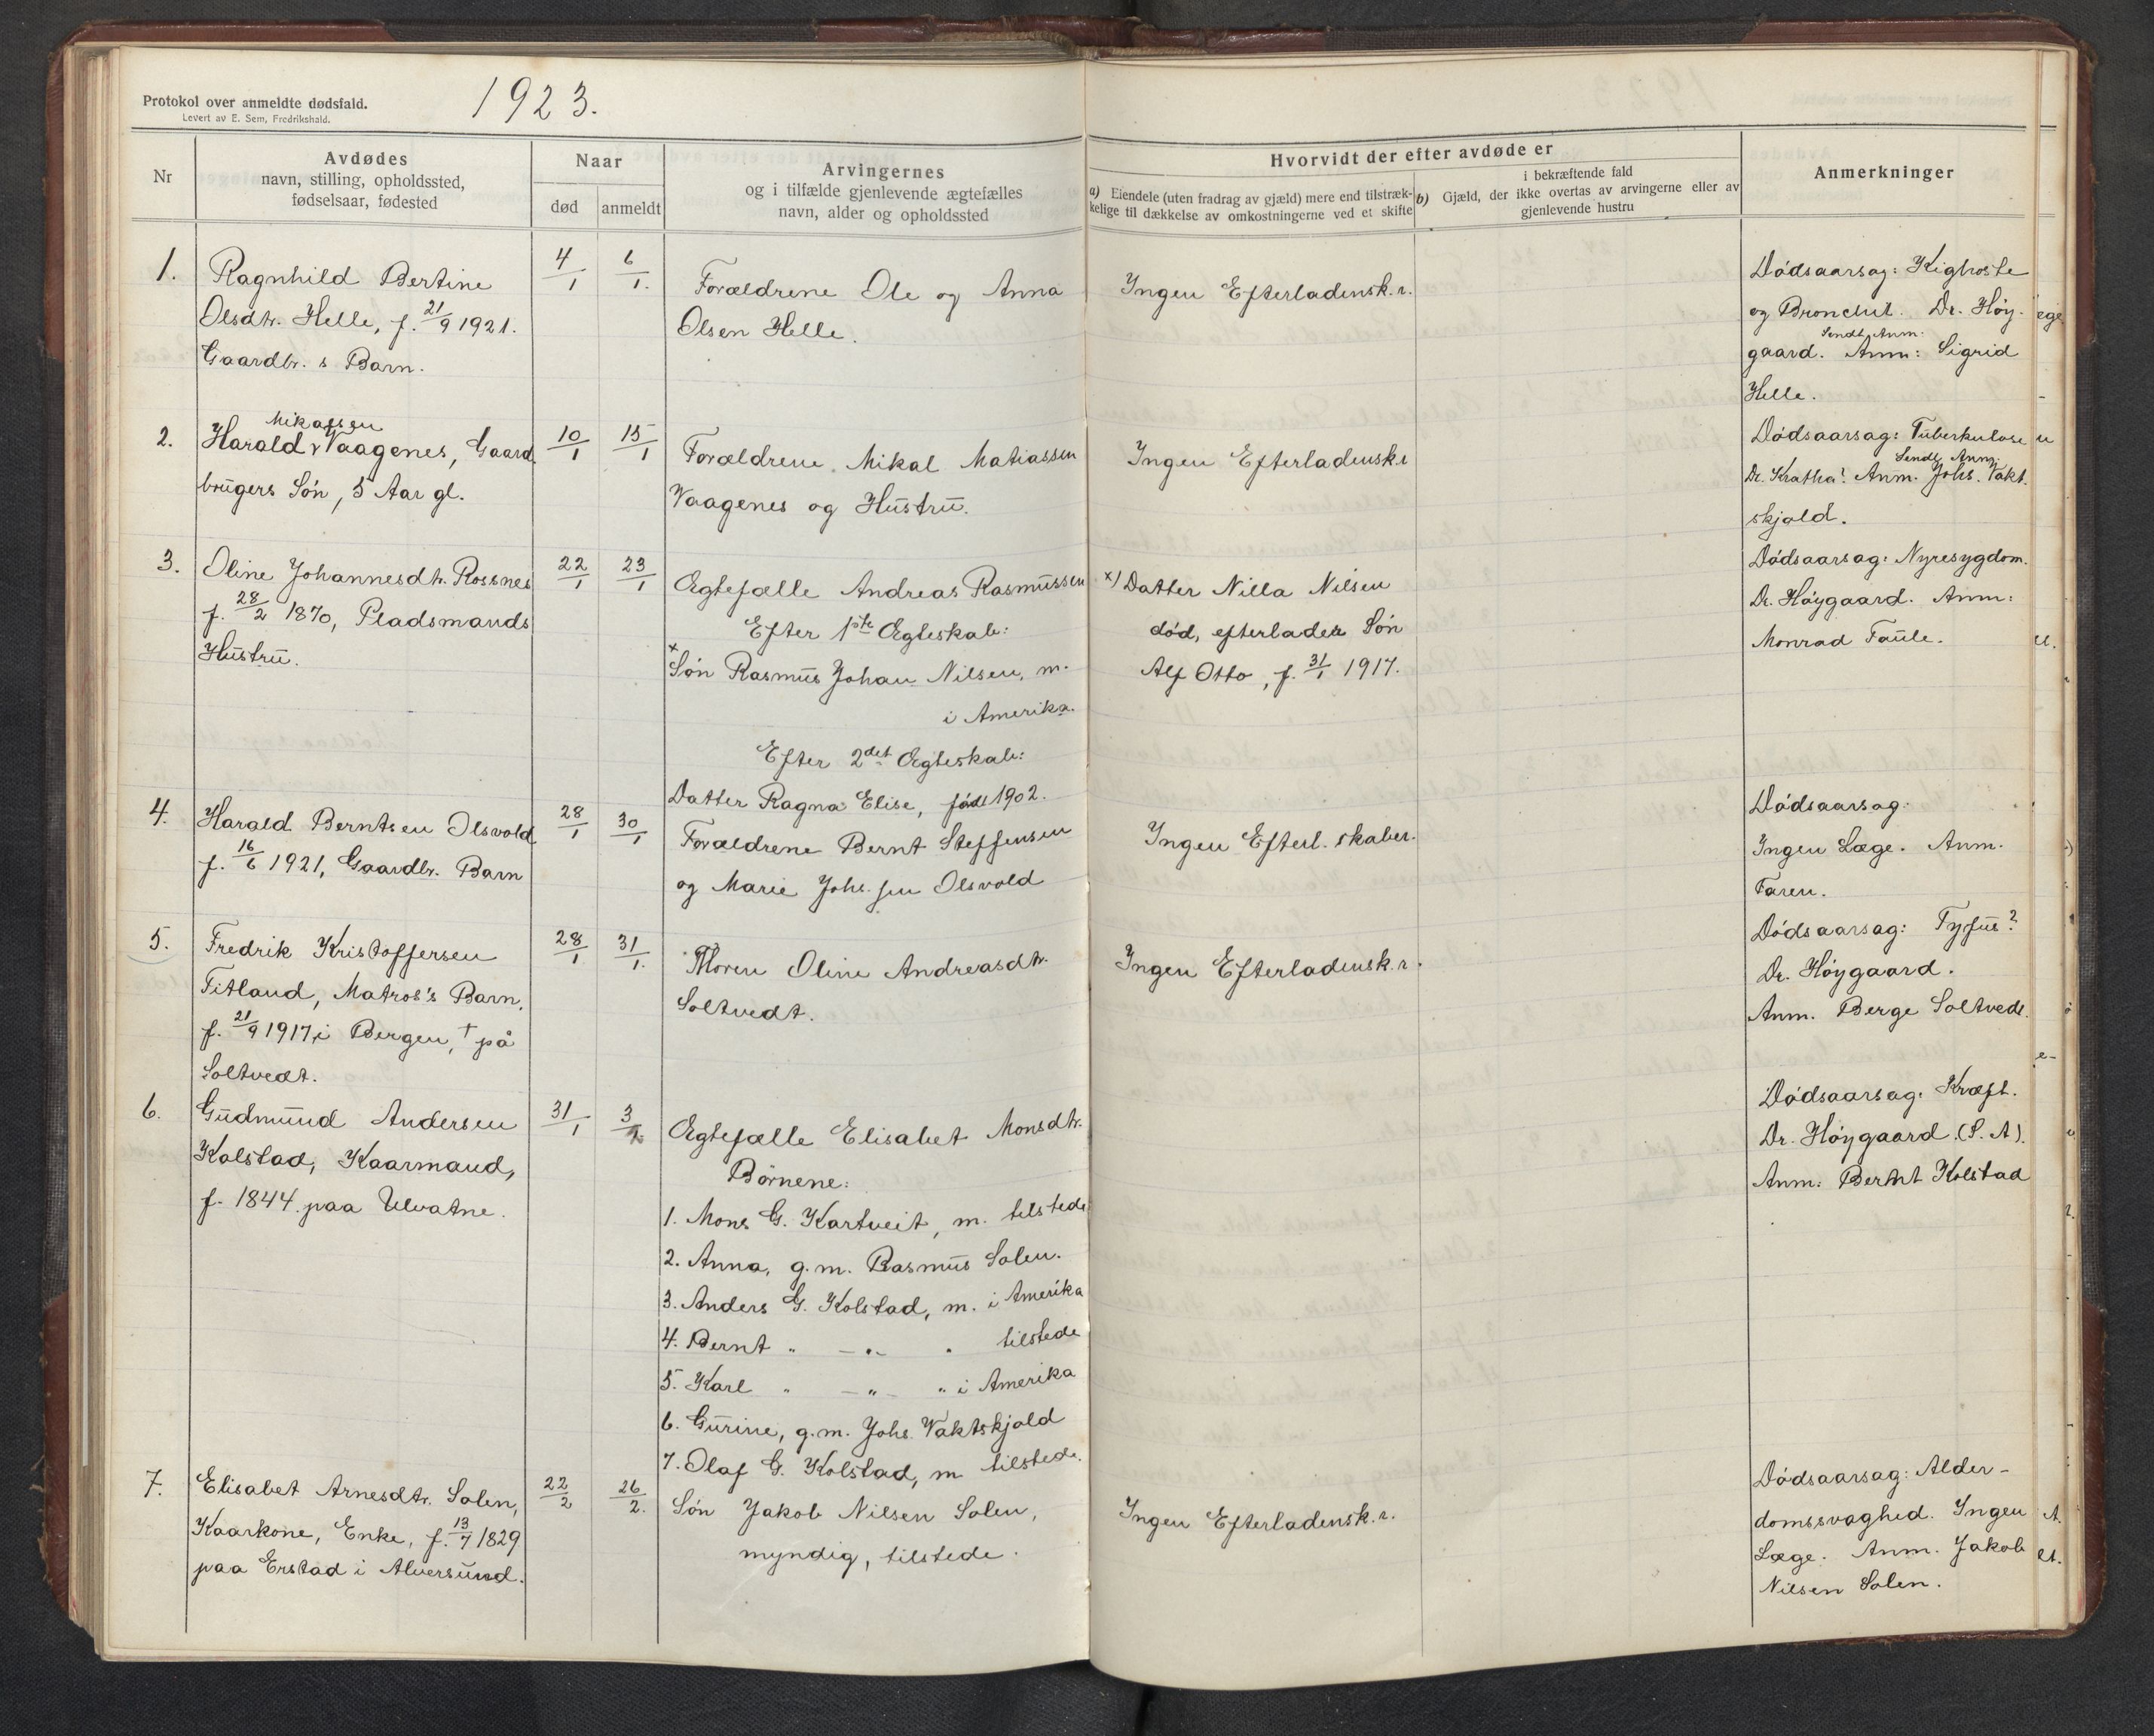 Protokol over anmeldte dødsfald.
Levert av E. Sem, Fredrikshald.
1923.
Nr
Avdødes
navn, stilling, opholdssted,
fødselsaar, fødested
Naar
død
anmeldt
Arvingernes
og i tilfælde gjenlevende ægtefælles
navn, alder og opholdssted
Hvorvidt der efter avdøde er
a) Eiendele (uten fradrag av gjæld) mere end tilstræk-
kelige til dækkelse av omkostningerne ved et skifte
i bekræftende fald
b) Gjæld, der ikke overtas av arvingerne eller av
gjenlevende hustru
Anmerkninger
1.
Ragnhild Bertine
Olsdtr. Helle, f. 21/9 1921.
Gaardbr. s Barn.
4/1
6/1.
Forældrene Ole og Anna
Olsen Helle.
Ingen Efterladensk.r.
Dødsaarsag: Kighoste
og Bronchit. Dr. Høy-
Sendt Anm.
gaard. Anm: Sigrid
Helle.
2.
Mikalsen
Harald Vaagenes, Gaard
brugers Søn, 5 Aar gl.
10/1
15/1
Forældrene Mikal Matiassen
Vaagenes og Hustru.
Ingen Efterladensk.r
Dødsaarsag: Tuberkulose
Sendt Anm.
Dr. Anm. Johs. Vakt.
skjold.
3.
Oline Johannesdtr. Rossnes
f. 28/2 1870, Pladsmands
Hustru.
22/1
23/1
Ægtefælle Andreas Rasmussen
Efter 1ste Ægteskab:
x
Søn Rasmus Johan Nilsen, m.
i Amerika.
Efter 2det Ægteskab:
Datter Ragna Elise, født 1902.
x) Datter Nilla Nilsen
død, efterlader Søn
Alf Otto, f. 31/1 1917.
Dødsaarsag: Nyresygdom.
Dr. Høygaard. Anm:
Monrad Faule.
4.
Harald Berntsen Olsvold
f. 16/6 1921, Gaardbr. Barn
28/1
30/1
Forældrene Bernt Steffensen
og Marie Johs.sen Olsvold
Ingen Efterl.skaber.
Dødsaarsag:
Ingen Læge. Anm.
Faren.
5.
Fredrik Kristoffersen
Fitland, Matros's Barn,
f. 21/9 1917 i Bergen, † på
Soltvedt.
28/1
31/1.
Moren Oline Andreasdtr.
Soltvedt.
Ingen Efterladensk.r.
Dødsaarsag: Tyfus?
Dr. Høygaard.
Anm. Berge Soltvedt.
6.
Gudmund Andersen
Kolstad, Kaarmand,
f. 1844 paa Ulvatne.
31/1
3/2
Ægtefælle Elisabet Monsdtr.
Børnene:
1. Mons G. Kartveit, m. tilstede
2. Anna, g.m. Rasmus Solen.
3. Anders G. Kolstad, m. i Amerika
4. Bernt " – " – " tilstede
5. Karl " – " – " i Amerika
6. Gurine, g.m. Johs. Vaktskjold
7. Olaf G. Kolstad, m. tilstede.
Dødsaarsag: Kræft.
Dr. Høygaard. (S. A).
Anm: Bernt Kolstad
7.
Elisabet Arnesdtr. Solen,
Kaarkone, Enke, f. 13/7 1829
paa Erstad i Alversund.
22/2
26/2.
Søn Jakob Nilsen Solen,
myndig, tilstede.
Ingen Efterladensk.r.
Dødsaarsag: Alder-
domssvaghed. Ingen
Læge. Anm. Jakob
Nilsen Solen.